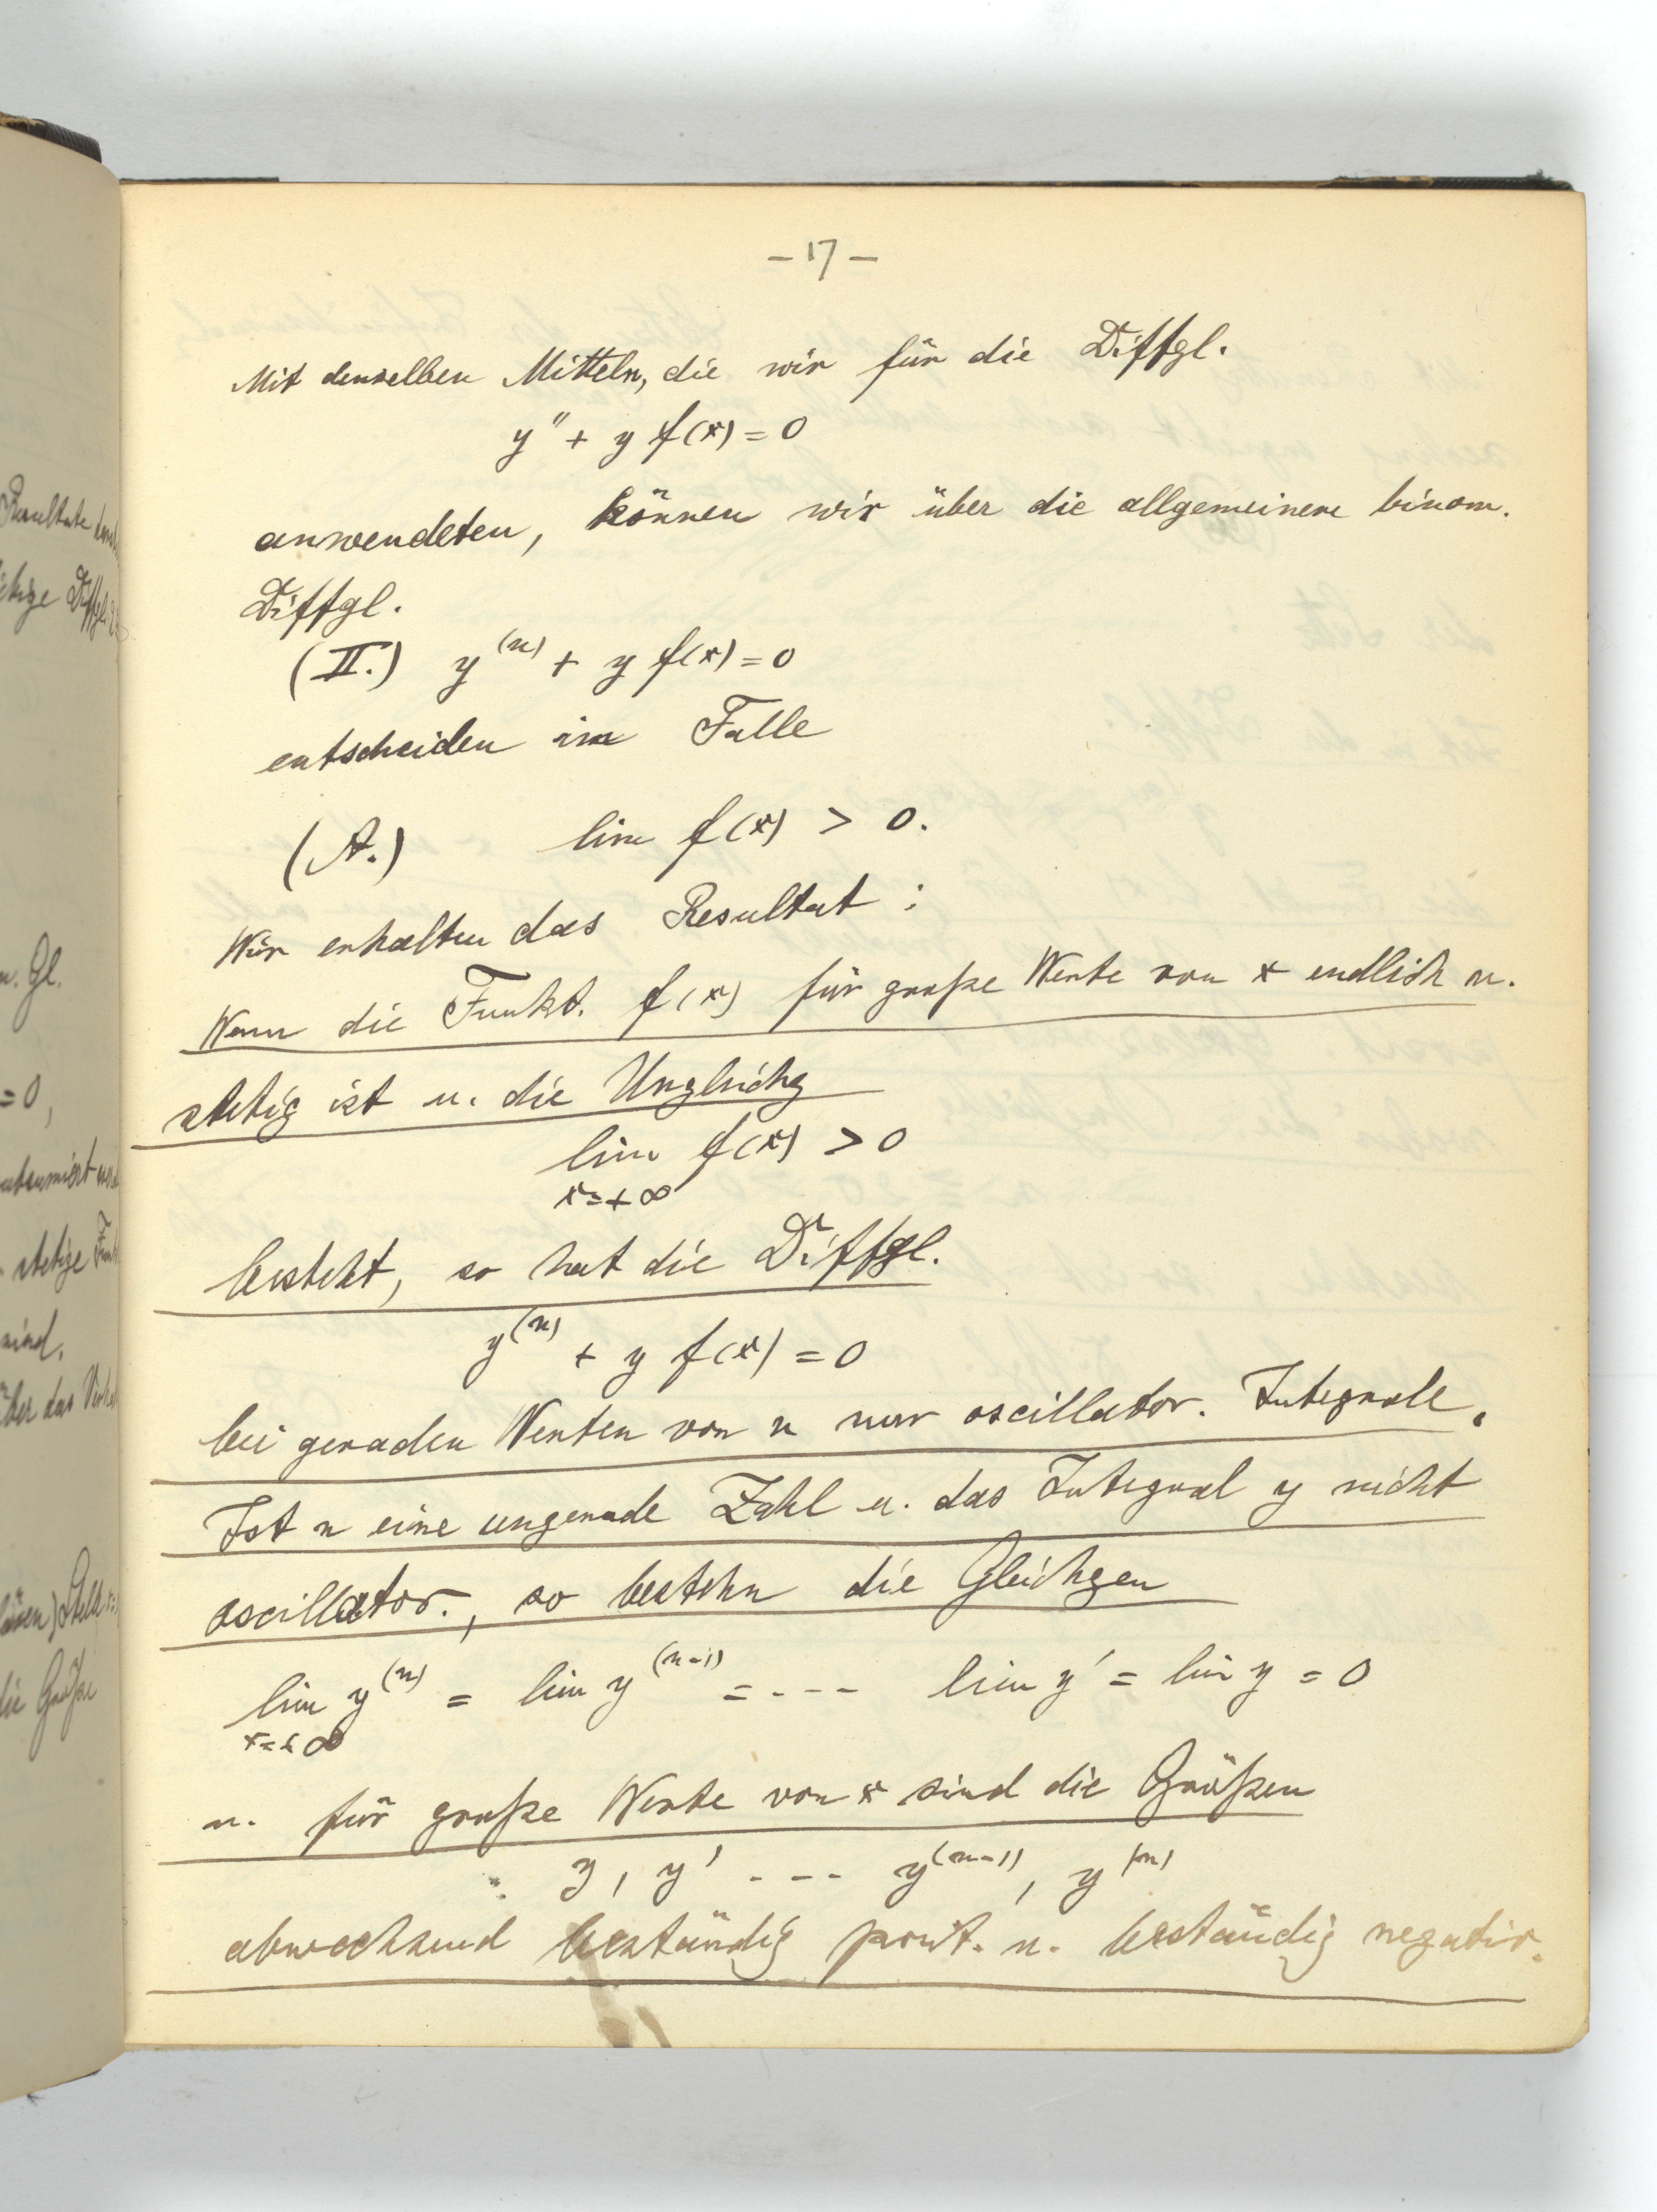 – 17 –
Mit denselben Mitteln, die wir für die Diffgl.
y'' + y f(x) = 0
anwendeten, können wir über die allgemeinere binom.
Diffgl.
(II.) y^(n) + y f(x) = 0
entscheiden im Falle
(A.) lim f(x) > 0.
Wir erhalten das Resultat :
Wenn die Funkt. f(x) für große Werte von x endlich u.
stetig ist u. die Ungleichg
lim f(x) > 0
x=+∞
besteht, so hat die Diffgl.
y^(n) + y f(x) = 0
bei geraden Werten von n nur oscillator. Integrale.
Ist n eine ungerade Zahl u. das Integral y nicht
oscillator., so bestehn die Gleichgen
lim y^(n) = lim y^(n-1) = - - - lim y' = lim y = 0
x=+∞
u. für große Werte von x sind die Größen
y, y' - - - y^(n-1), y^(n)
abwechselnd beständig posit. u. beständig negativ.
Resultate
Diffgl.
u. Gl.
= 0,
stetige
sind.
über das
die Größe